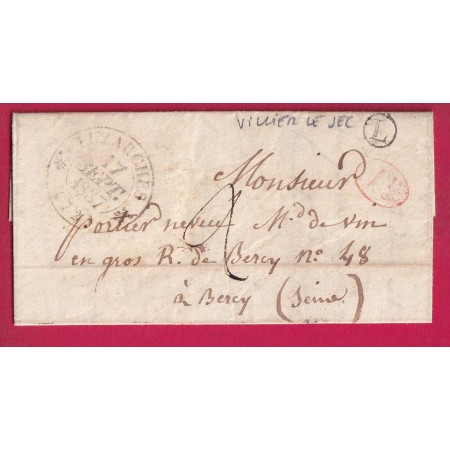 VILLIER LE SEC
L
LUSARCHES
17
SEPT.
1837
2
Monsieur
portier neveu Md de vin
en gros R. de Bercy no. 48
à Bercy (Seine)